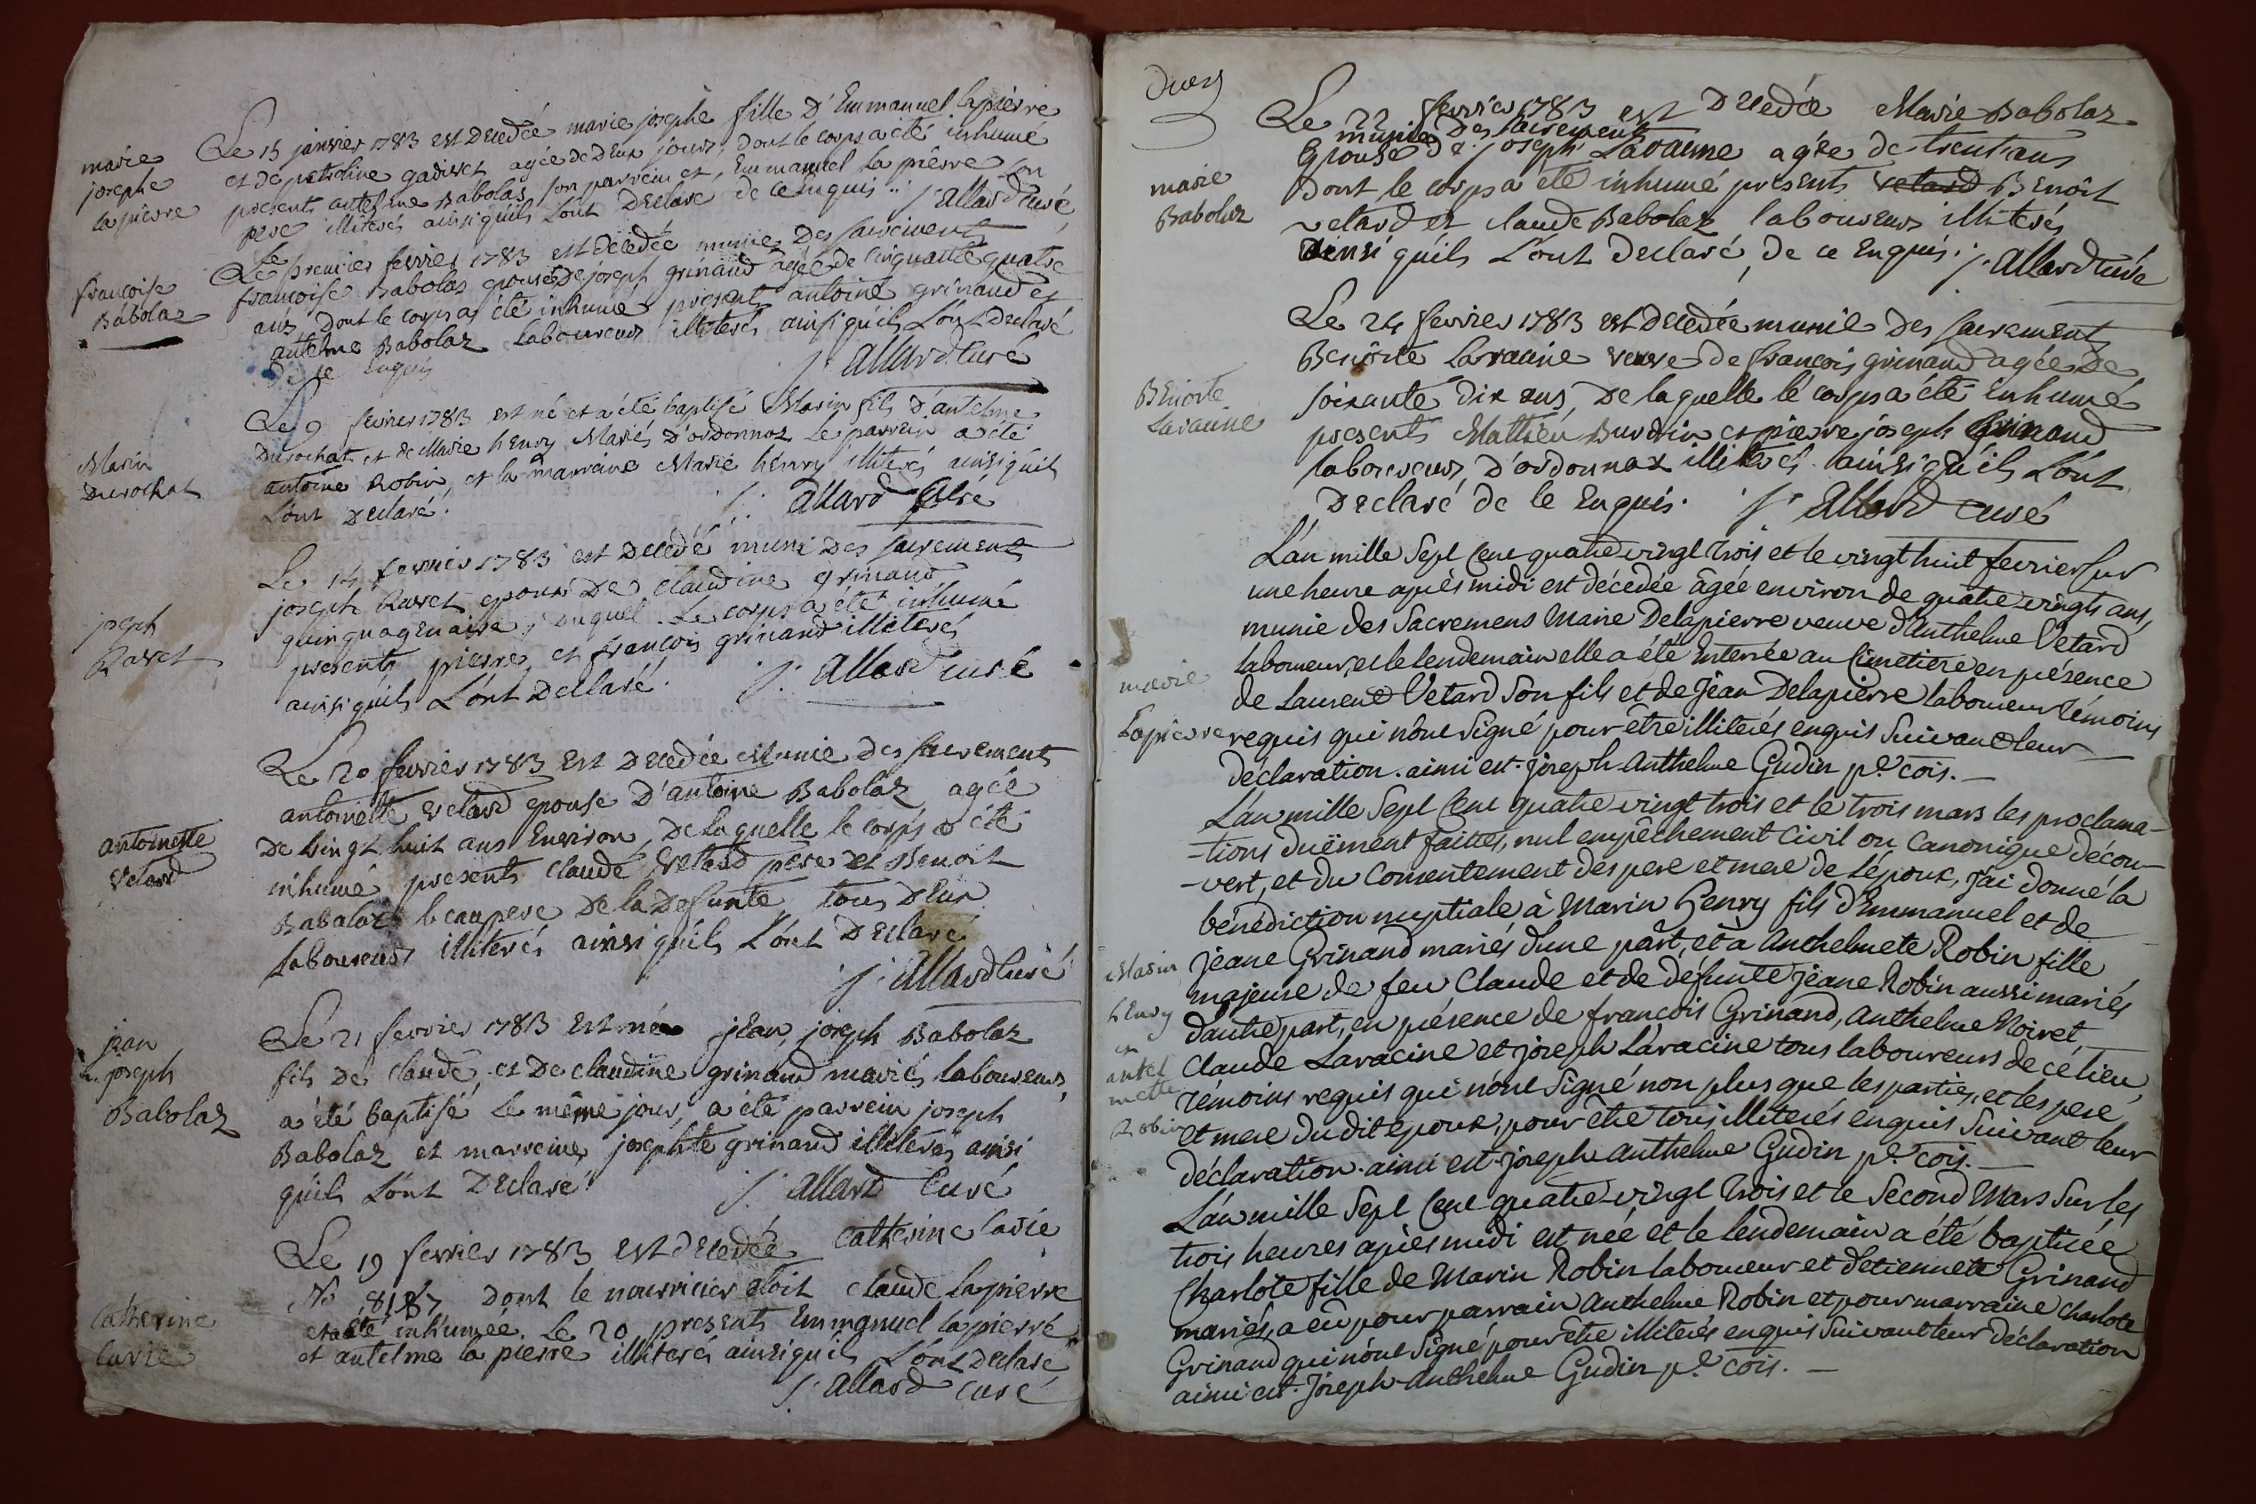 marie
josephe
lapierre
Le 15 janvier 1783 est Decedée marie josephe fille d'Emmanuel lapierre
et de petroline gadivet agée de Deux jours, dont le corps a été inhumé
presents antelme Babolas son parrein et, Emmanuel la pierre son
pere illiterés ainsi quils l'ont Declaré de ce enquis. j. allard curé
francoise
Babolaz
Le premier fevrier 1783 est decedée munie des sacrements
francoise Babolas epouse de joseph grinand agée de cinquante quatre
ans, dont le corps a été inhumé presents antoine grinand et
antelme Babolaz laboureurs illiterés ainsi quils l'ont Declaré
de ce enquis
j. allard curé
Marin
Durochat
Le 9 fevrier 1783 est né et a été baptisé Marin fils d'antelme
Durochat et de Marie henry Mariés d'ordonnaz le parrein a été
antoine Robin, et la marreine Marie henry illiterés ainsi quils
l'ont declaré.
j. allard curé
joseph
Ravet
Le 14 fevrier 1783 est Decedé muni des sacrements
joseph Ravet epoux De claudine grinand
quinquagenaire, duquel le corps a été inhumé
presents pierre, et francois grinand illiterés
ainsi quils l'ont Declaré. j. allard curé
antoinette
Vetard
Le 20 fevrier 1783 est Decedée Munie des sacrements
antoinette vetard epouse D'antoine Babolaz agée
De vingt huit ans Environ, de laquelle le corps a été
inhumé presents claude vetard pere et Benoit
Babolaz beaupere De la Defunte tous deux
laboureurs illiterés ainsi quils l'ont Declaré
j. allard curé
jean
joseph
Babolaz
Le 21 fevrier 1783 est né jean joseph Babolaz
fils de claude, et De claudine grinand mariés laboureurs,
a été baptisé le même jour, a été parrein joseph
Babolaz et marreine josephte grinand illiterés ainsi
quils l'ont Declaré. j. allard curé
Catherine
lavie
Le 19 fevrier 1783 est decedée Catherine lavie
No 8187 dont le nourricier etoit claude lapierre
et a été inhumée le 20 presents Emmanuel lapierre
et antelme la pierre illiterés ainsi quils l'ont declaré
j. allard curé
marie
Babolaz
Le 22 fevrier 1783 est Decedée Marie Babolaz
munie des sacrements
Epouse de joseph Lavanne agée de trent ans
Dont le corps a été inhumé presents vetard Benoit
vetard et claude Babolaz laboureurs illiterés
ainsi quils l'ont declaré, de ce Enquis. j. allard curé
Benoite
Laracine
Le 24 fevrier 1783 est Decedée munie des sacrements
Benoite Larracine veuve de francois grinand agée De
soixante dix ans, De laquelle le corps a été inhumé
presents Mathieu Burdin et pierre joseph Grinand
laboureurs, D'ordonnaz illiterés. ainsi qu'ils l'ont
Declaré de ce Enquis. j. allard curé
marie
Lapierre
L'an mille Sept Cent quatre vingt trois et le vingt huit fevrier Sur
une heure après midi est décedée âgée environ de quatre vingts ans,
munie des Sacremens Marie Delapierre veuve d'Anthelme Vetard
laboureur, et le lendemain elle a été Enterrée au Cimetiere en présence
de Laurent Vetard Son fils et de jean Delapierre laboureurs témoins
requis qui n'ont Signé pour être illiterés enquis Suivant leur
déclaration. ainsi est. joseph Anthelme Gudin p.e cois. —
Marin
henry
et
antel
mette
Robin
L'an mille Sept Cent quatre vingt trois et le trois mars les proclama-
-tions duëment faittes, nul empêchement Civil ou Canonique décou-
-vert, et du Consentement des pere et mere de l'époux, j'ai donné la
bénédiction nuptiale à Marin henry fils d'Emmanuel et de
jeane Grinand mariés d'une part, et à Anthelmete Robin fille
majeure de feu Claude et de défunte jeane Robin aussi mariés
d'autre part, en présence de francois Grinand, Anthelme Noiret,
Claude Laracine et joseph Laracine tous laboureurs de ce lieu,
témoins requis qui n'ont Signé non plus que les parties, et les pere
et mere du dit epoux, pour être tous illiterés enquis Suivant leur
déclaration. ainsi est. joseph Anthelme Gudin p.e cois. —
L'an mille Sept Cent quatre vingt trois et le Second Mars Sur les
trois heures après midi est née et le lendemain a été baptisée
Charlote fille de Marin Robin laboureur et d'etiennete Grinand
mariés, a eû pour parrain Anthelme Robin et pour marraine Charlote
Grinand qui n'ont Signé pour être illiterés enquis Suivant leur déclaration
ainsi est. joseph Anthelme Gudin p.e cois. —